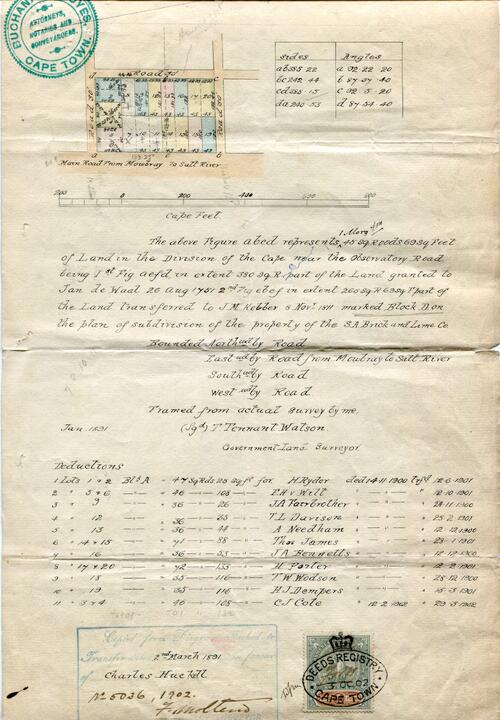 BUCHANAN
ATTORNEYS,
NOTARIES AND
CONVEYANCERS.
CAPE TOWN.
Road 30
Main Road From Mowbray To Salt River
Sides Angles
ab 555 22 a 92 22 20
bc 242 44 b 87 37 40
cd 555 15 c 92 5 20
da 240 53 d 87 54 40
200 0 200 400 600 800
Cape Feet
1 Morg
The above Figure abcd represents 45 Sq Roods 69 Sq Feet
of Land in the Division of the Cape near the Observatory Road
being 1st Fig aefd in extent 380 Sq R. part of the Land granted to
Jan de Waal 26 Aug 1751 2nd Fig ebcf in extent 265 Sq R 69 Sq F part of
the Land transferred to J.M. Kebber 8 Nov. 1811 marked Block D on
the plan of subdivision of the property of the S.A. Brick and Lime Co
Bounded Northwd by Road
Eastwd by Road from Mowbray to Salt River
Southwd by Road
Westwd by Road
Framed from actual survey by me,
Jan. 1891 (Sgd) T Tennant Watson
Government Land Surveyor
Deductions
1 Lots 1 & 2 Blk A " 47 Sq Rds 28 Sq ft for H Ryder ded 14-11 1900 12-6 1901
2 " 5 & 6 " 46 108 E.H. v Witt 12-10 1901
3 " 9 " 36 26 J.A. Fairbrother 24-11 1900
4 " 12 " 36 63 T.L. Davison 25-2 1901
5 " 13 " 36 44 A Needham 12-12 1900
6 " 14 & 15 " 71 88 Thos James 23-1 1901
7 " 16 " 36 53 J.A. Bennetts 12-12 1900
8 " 17 & 20 " 72 135 H. Porter 12-2 1901
9 " 18 " 35 116 T.W. Wodson 28-12 1900
10 " 19 " 35 116 H.J. Dempers 15-3 1901
11 " 3 & 4 " 46 108 C.J. Cole 12-2 1902 29-3 1902
2nd March 1891
Charles Huckell
No 5036, 1902.
DEEDS REGISTRY
3. OC. 02
CAPE TOWN